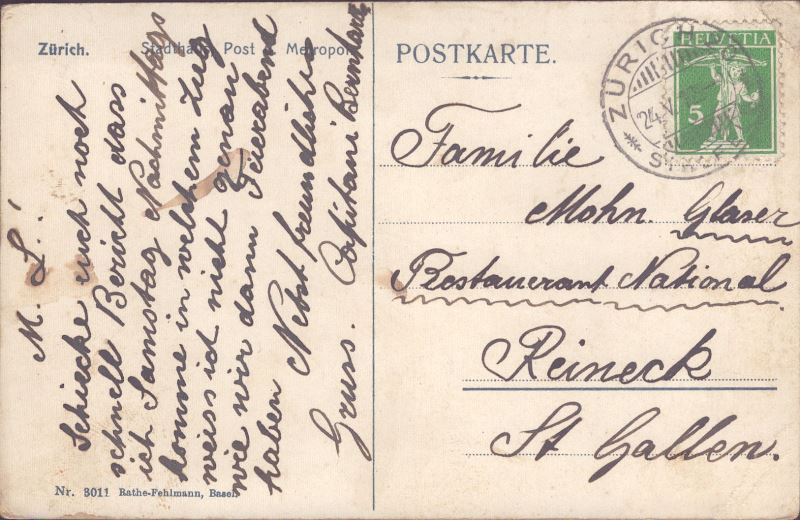 Zürich. Stadthaus, Post & Metropol
POSTKARTE.
HELVETIA
5
ZÜRICH
24.V.
M. L.!
Schicke euch noch
schnell Bericht dass
ich Samstag Nachmittags
komme in welchem Zug
weiss ich nicht genau
wie wir dann Feierabend
haben Nebst freundlichen
Gruss. Capitani Bernhard
Familie
Mohn. Glaser
Restauerant National
Reineck
St Gallen.
Nr. 3011 Rathe-Fehlmann, Basel